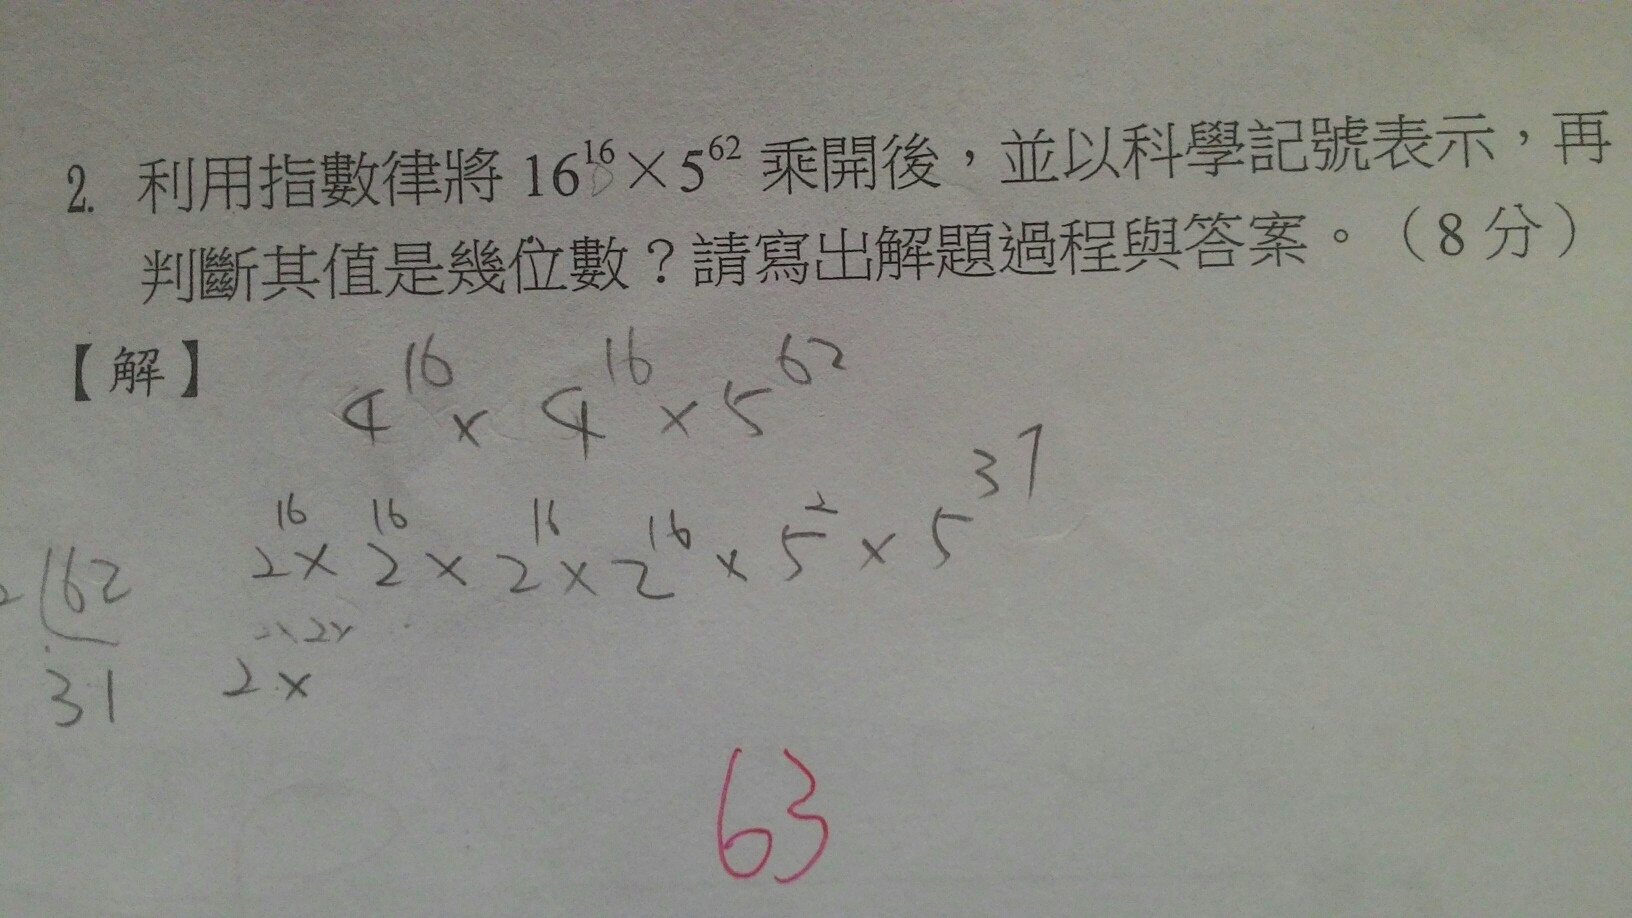 2. 利用指數律將 16¹⁶×5⁶² 乘開後，並以科學記號表示，再
判斷其值是幾位數？請寫出解題過程與答案。（8 分）
【解】
4¹⁶ × 4¹⁶ × 5⁶²
2¹⁶ × 2¹⁶ × 2¹⁶ × 2¹⁶ × 5² × 5³¹
2 62
31
2 ×
63